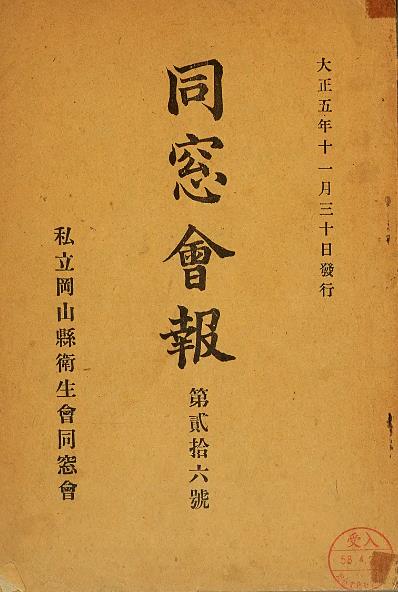 大正五年十一月三十日發行
同窓會報
第貳拾六號
私立岡山縣衞生會同窓會
受入